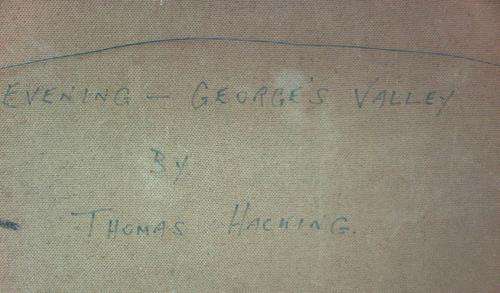 EVENING — GEORGE'S VALLEY
BY
THOMAS HACKING.